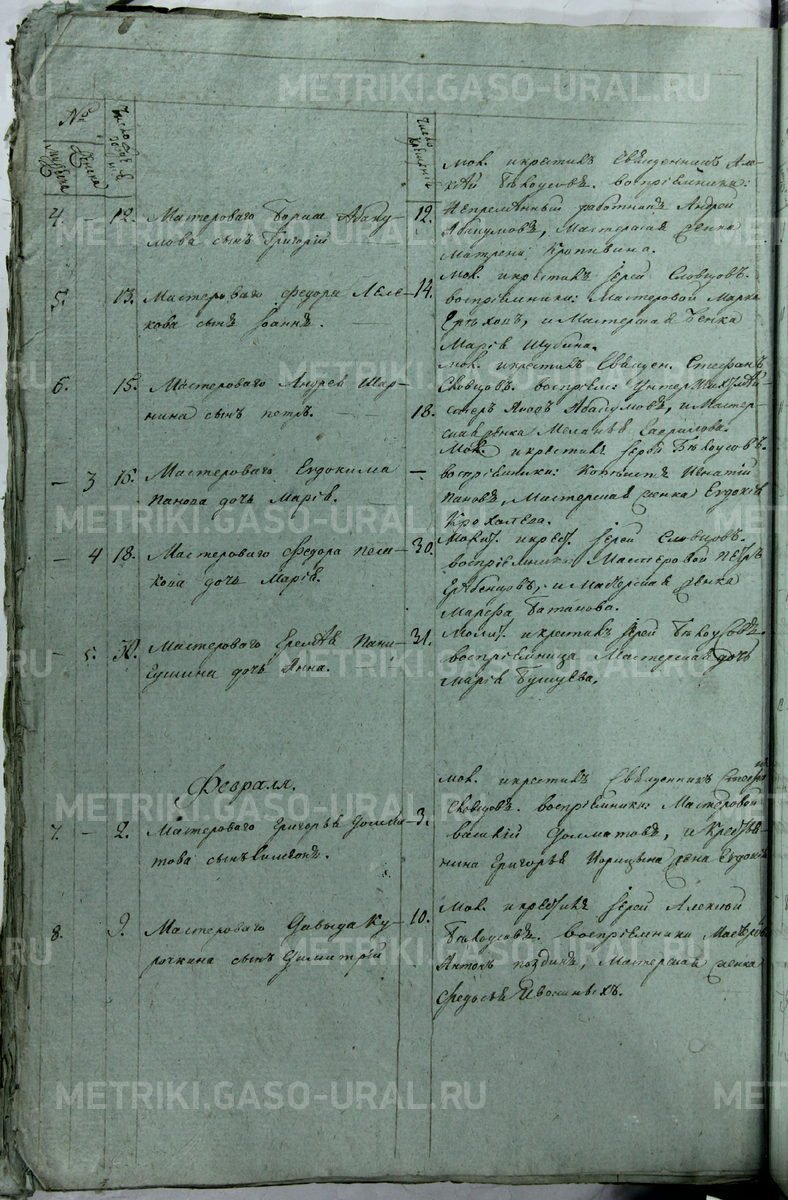 METRIKI.GASO-URAL.RU
№
Мужеска
Женска
Число
Число крещенія
мол. и крестилъ Священникъ Але-
ксѣй Бѣлоусовъ. воспріемники:
4. — 12. Мастероваго Бориса Абаку-
мова сынъ Григорій
12. Непремѣнный работникъ Андрей
Абакумовъ, Мастерская женка
Матрена Кропивина.
5. 13. Мастероваго Федора Пеле-
кова сынъ Іоаннъ.
14. мол. и крестилъ Іерей Словцовъ.
воспріемники: Мастеровой Марко
и Мастерская женка
Марія Шубина.
6. 15. Мастероваго Андрея Шар-
нина сынъ Петръ.
18. мол. и крестилъ Священ. Стефанъ
Словцовъ. воспріем:
Абакумовъ, и Мастер-
ская женка Меланья Гаврилова.
— 3 16. Мастероваго Евдокима
Панова дочь Марія.
— мол. и крестилъ Іерей Бѣлоусовъ.
воспріемники: Копіистъ Игнатій
Пановъ, Мастерская женка Евдокія
Крохалева.
— 4 18. Мастероваго Федора
кова дочь Марія.
30. Молит. и крест. Іерей Словцовъ.
воспріемники Мастеровой Петръ
и Мастерская женка
Марфа Батанова.
— 5. Мастероваго Еремѣя Пани-
дочь Анна.
31. Молит. и крестилъ Іерей Бѣлоусовъ.
воспріемница Мастерская дочь
Марія Бушуева.
Февраля.
7. — 2. Мастероваго Григорья Долма-
това сынъ Симеонъ.
3. мол. и крестилъ Священникъ Стефанъ
Словцовъ. воспріемники: Мастеровой
Василій Долматовъ, и Крестья-
нина Григорья жена Евдокія
8. 9. Мастероваго Давыда Ку-
рочкина сынъ Димитрій
10. мол. и крестилъ Іерей Алексѣй
Бѣлоусовъ. воспріемники Мастеровой
Антонъ Поздинъ, Мастерская женка
Федосья Ивониныхъ.